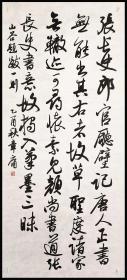 张长史郎官厅壁记唐人正书
无能出其右者故草圣度越诸家
无辙迹可寻怀素见颜尚书道张
长史书意故独入笔墨三昧
山谷题跋一则 乙酉秋